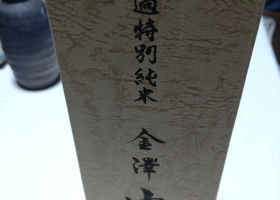 特別純米
金澤